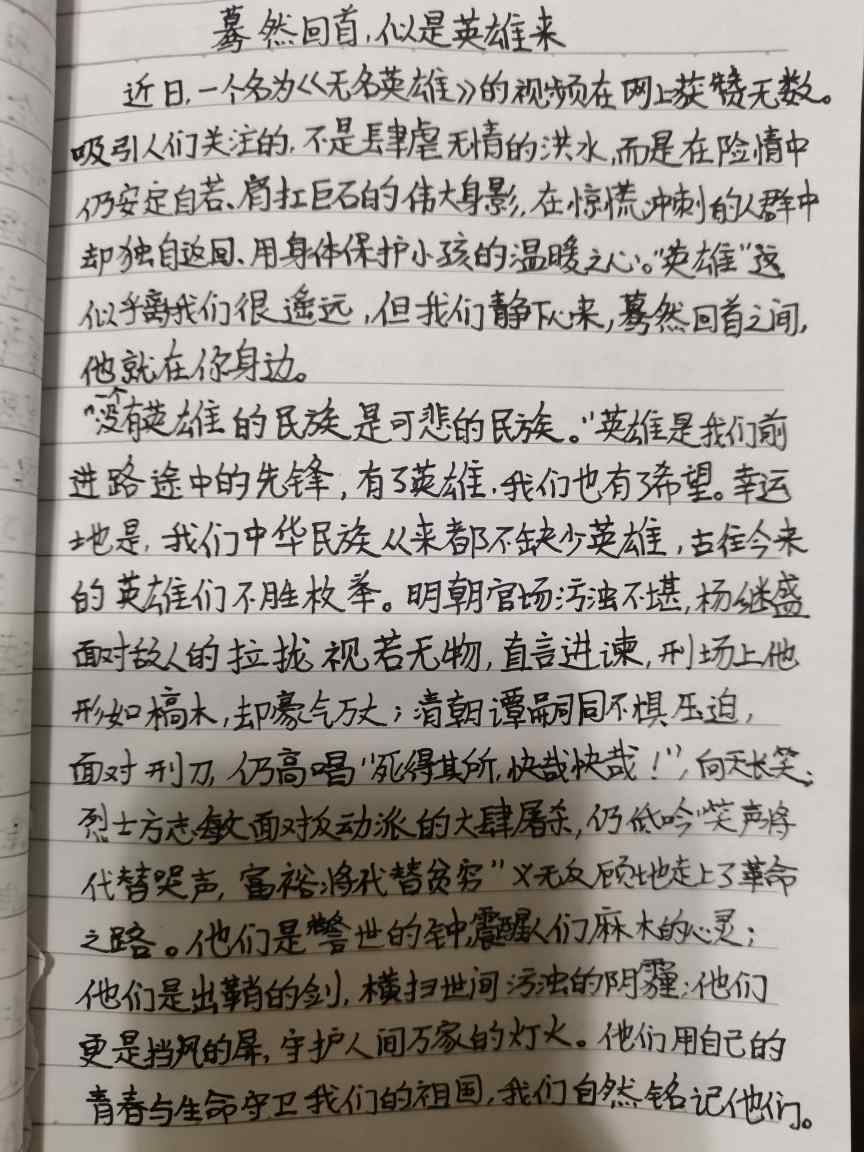 蓦然回首,似是英雄来
近日,一个名为《无名英雄》的视频在网上获赞无数。
吸引人们关注的,不是肆虐无情的洪水,而是在险情中
仍安定自若、肩扛巨石的伟大身影,在惊慌冲刺的人群中
却独自返回、用身体保护小孩的温暖之心。"英雄"这
似乎离我们很遥远,但我们静下心来,蓦然回首之间,
他就在你身边。
"一个没有英雄的民族是可悲的民族。"英雄是我们前
进路途中的先锋,有了英雄,我们也有了希望。幸运
地是,我们中华民族从来都不缺少英雄,古往今来
的英雄们不胜枚举。明朝官场污浊不堪,杨继盛
面对敌人的拉拢视若无物,直言进谏,刑场上他
形如槁木,却豪气万丈;清朝谭嗣同不惧压迫,
面对刑刀,仍高唱"死得其所,快哉快哉!",向天长笑;
烈士方志敏面对反动派的大肆屠杀,仍低吟"笑声将
代替哭声,富裕将代替贫穷"义无反顾地走上了革命
之路。他们是警世的钟,震醒人们麻木的心灵;
他们是出鞘的剑,横扫世间污浊的阴霾;他们
更是挡风的屏,守护人间万家的灯火。他们用自己的
青春与生命守卫我们的祖国,我们自然铭记他们。